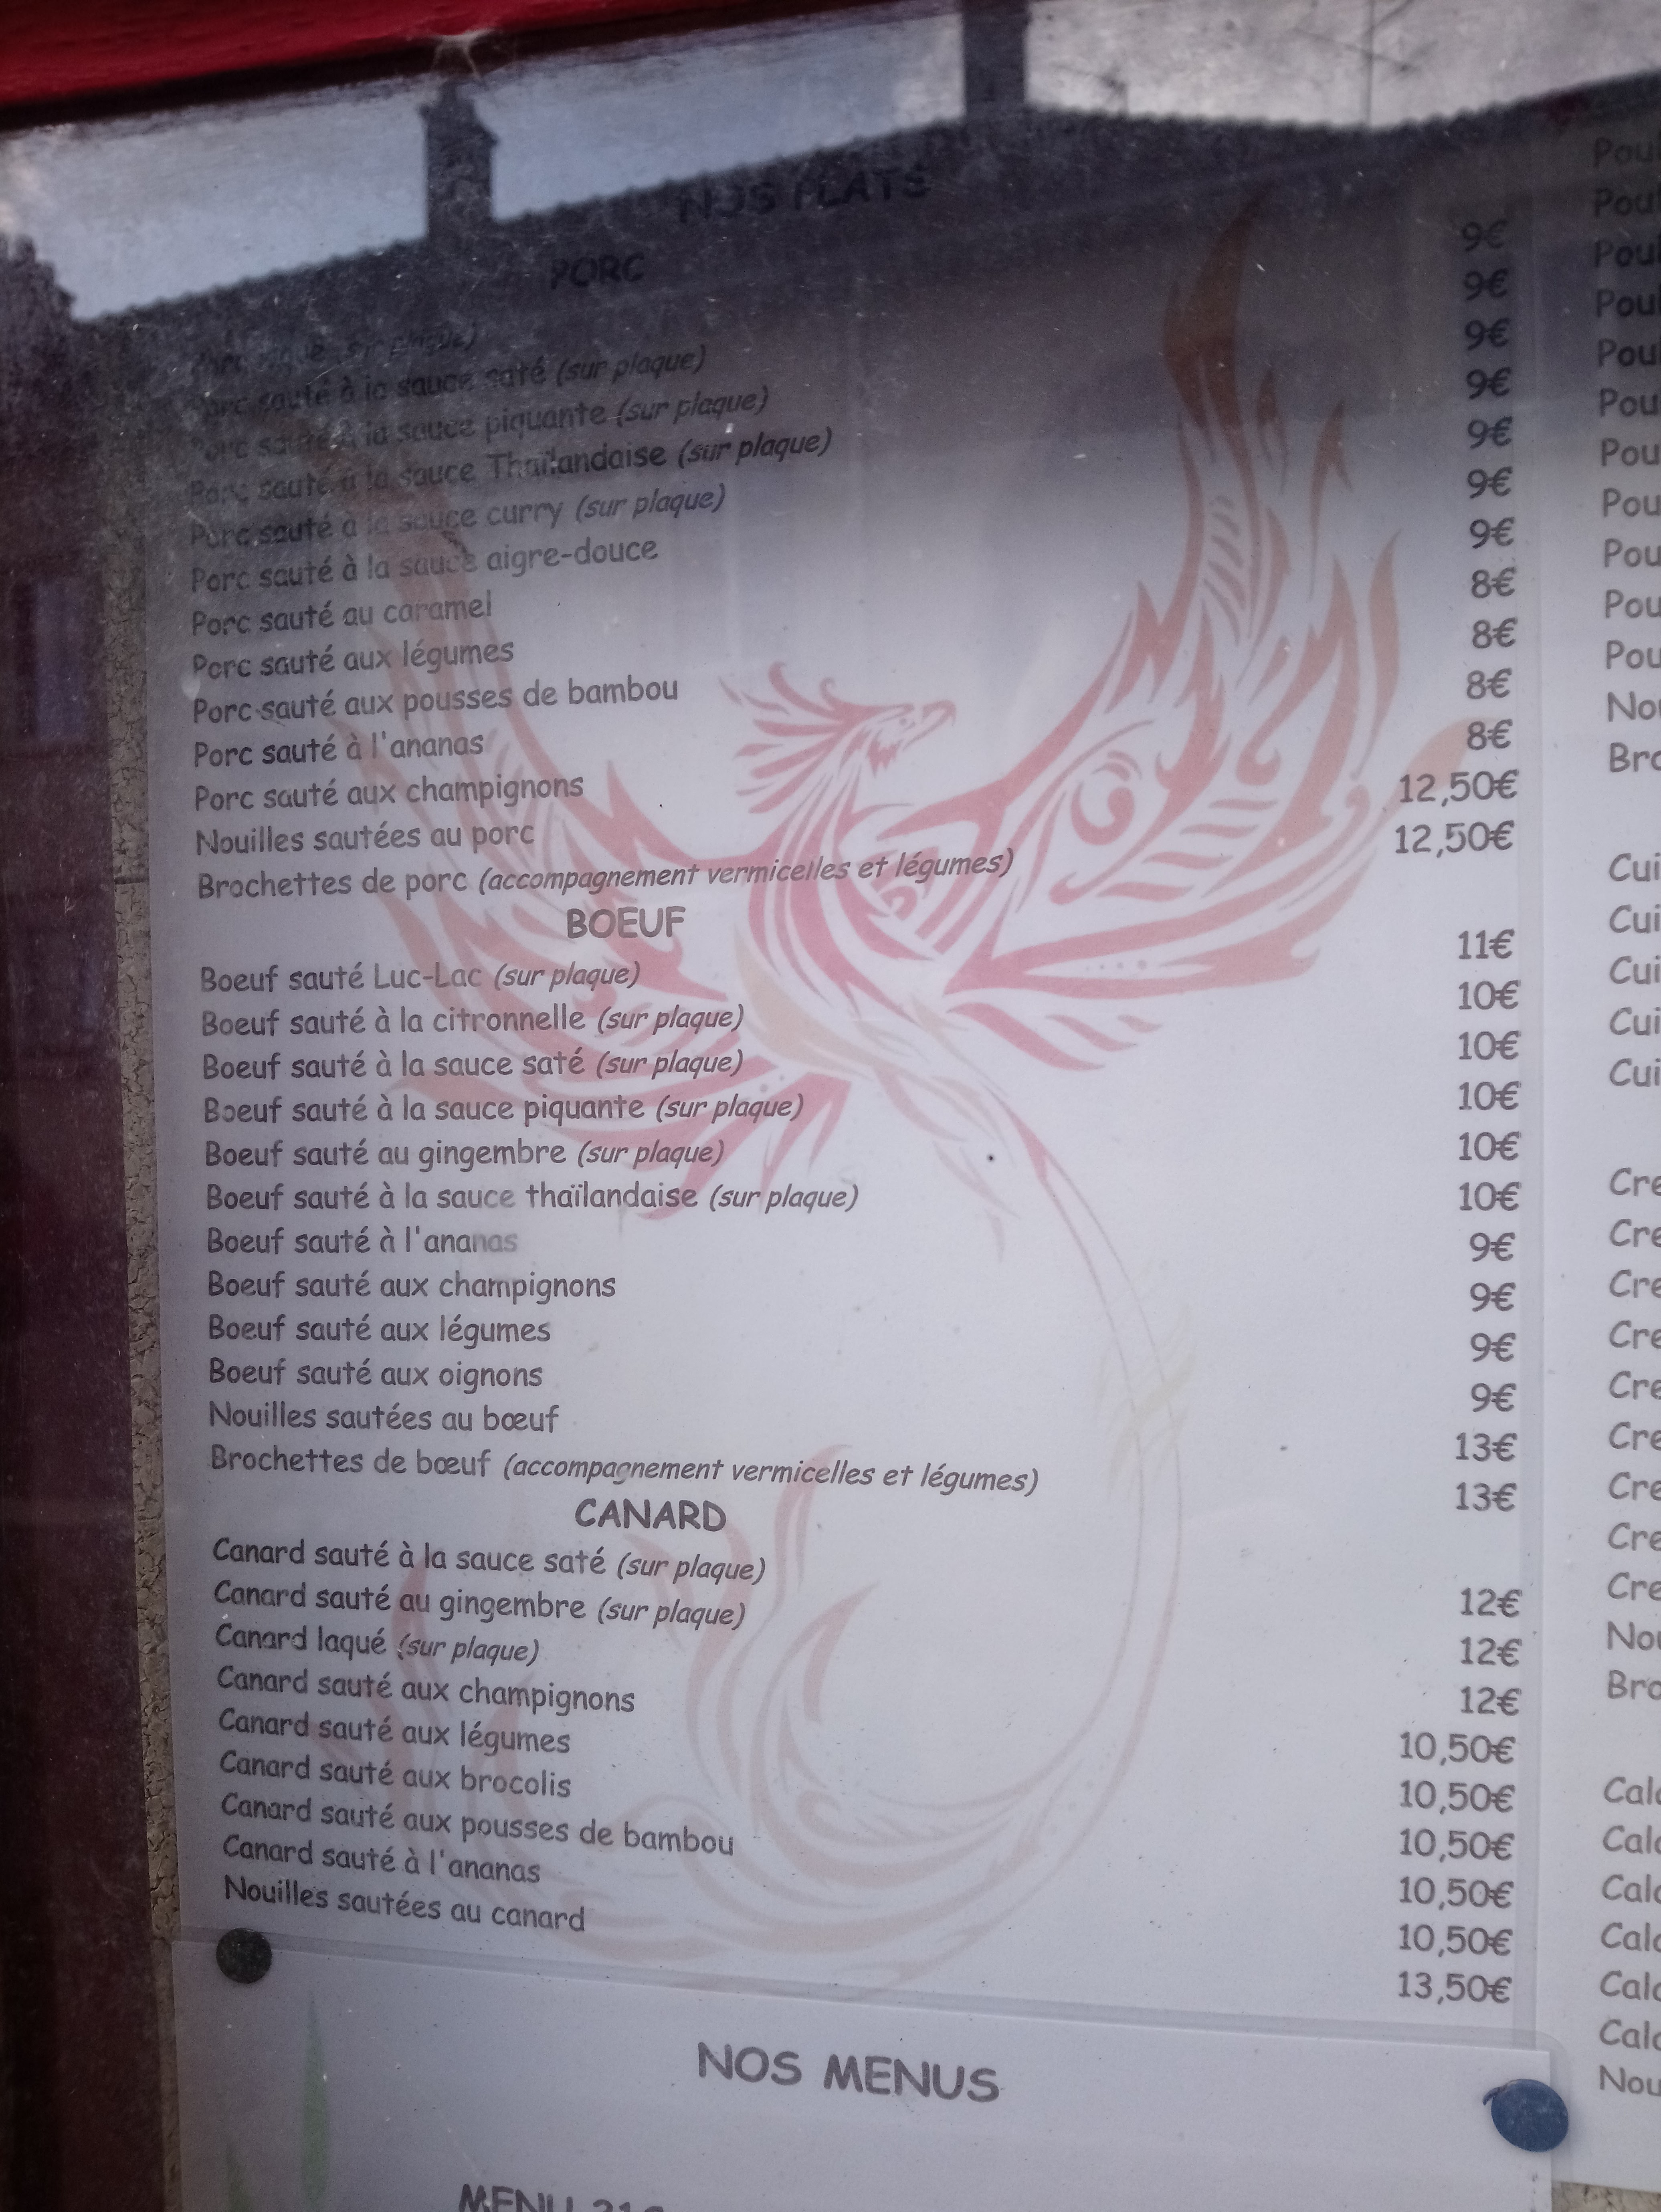 NOS PLATS
PORC
Porc laqué (sur plaque) 9€
Porc sauté à la sauce saté (sur plaque) 9€
Porc sauté à la sauce piquante (sur plaque) 9€
Porc sauté à la sauce Thaïlandaise (sur plaque) 9€
Porc sauté à la sauce curry (sur plaque) 9€
Porc sauté à la sauce aigre-douce 9€
Porc sauté au caramel 9€
Porc sauté aux légumes 8€
Porc sauté aux pousses de bambou 8€
Porc sauté à l'ananas 8€
Porc sauté aux champignons 8€
Nouilles sautées au porc 12,50€
Brochettes de porc (accompagnement vermicelles et légumes) 12,50€
BOEUF
Boeuf sauté Luc-Lac (sur plaque) 11€
Boeuf sauté à la citronnelle (sur plaque) 10€
Boeuf sauté à la sauce saté (sur plaque) 10€
Boeuf sauté à la sauce piquante (sur plaque) 10€
Boeuf sauté au gingembre (sur plaque) 10€
Boeuf sauté à la sauce thaïlandaise (sur plaque) 10€
Boeuf sauté à l'ananas 9€
Boeuf sauté aux champignons 9€
Boeuf sauté aux légumes 9€
Boeuf sauté aux oignons 9€
Nouilles sautées au bœuf 13€
Brochettes de bœuf (accompagnement vermicelles et légumes) 13€
CANARD
Canard sauté à la sauce saté (sur plaque) 12€
Canard sauté au gingembre (sur plaque) 12€
Canard laqué (sur plaque) 12€
Canard sauté aux champignons 10,50€
Canard sauté aux légumes 10,50€
Canard sauté aux brocolis 10,50€
Canard sauté aux pousses de bambou 10,50€
Canard sauté à l'ananas 10,50€
Nouilles sautées au canard 13,50€
NOS MENUS
MENU